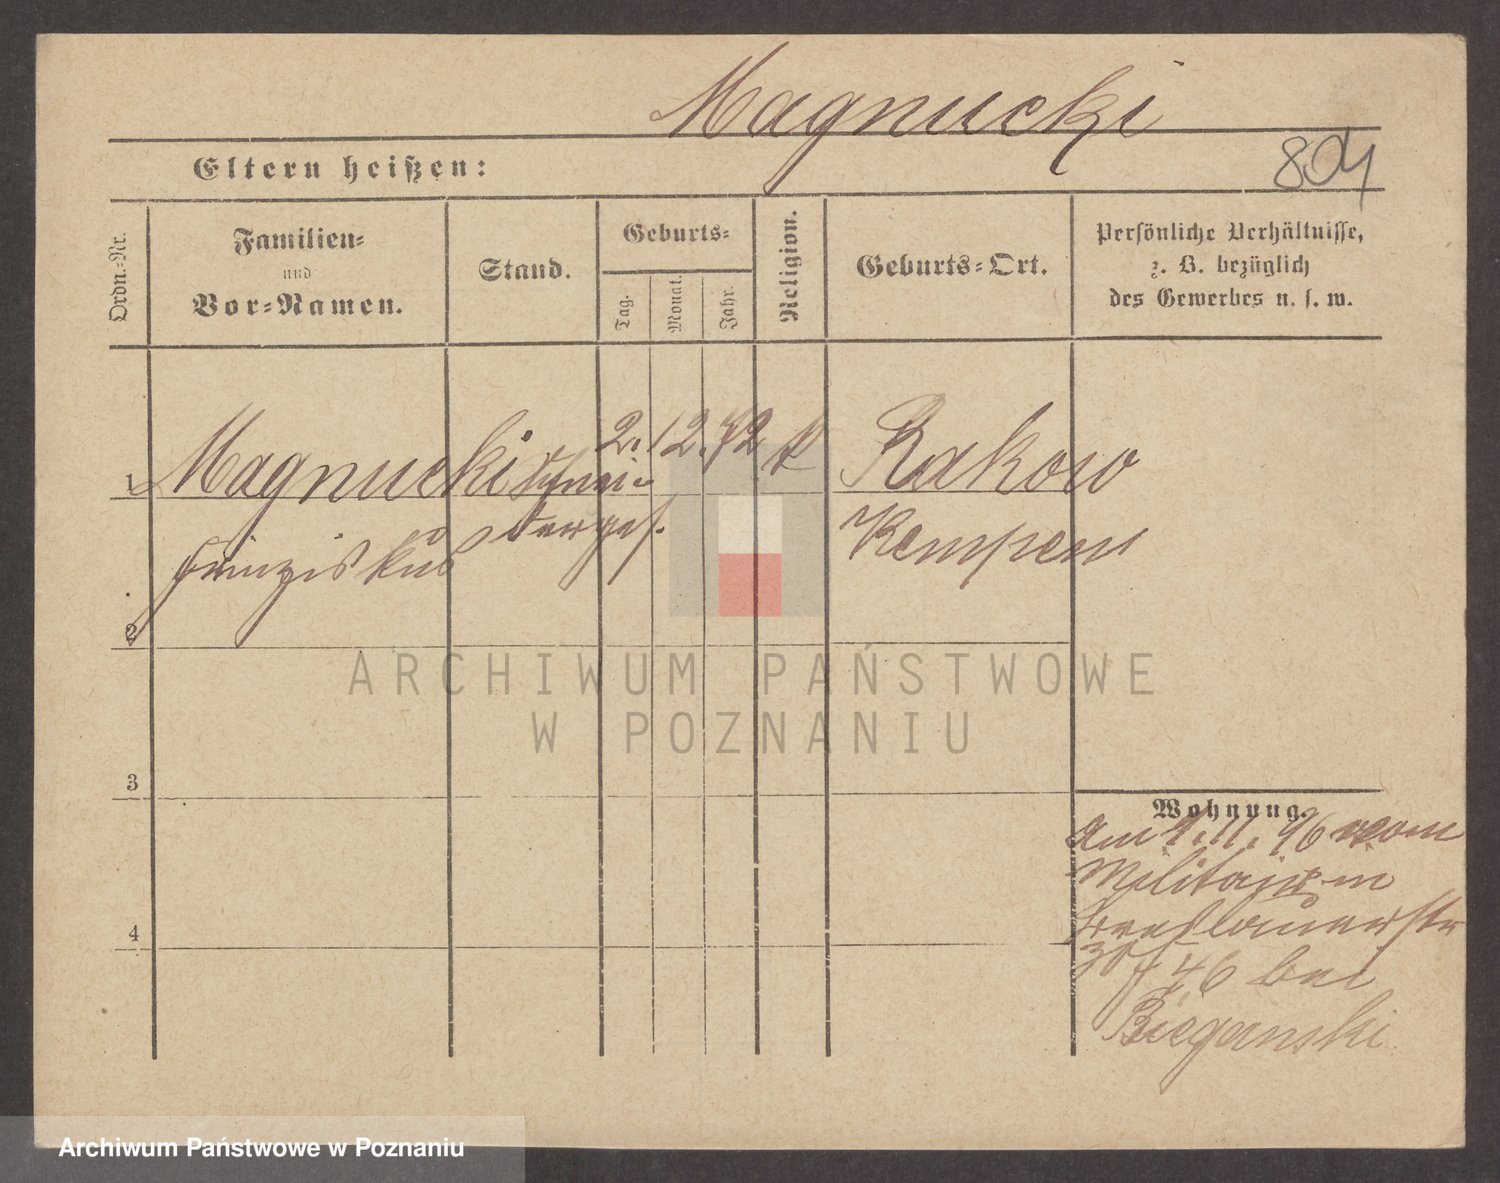 Magnucki
804
Eltern heißen:
Ordn.-Nr.
Familien-
und
Vor-Namen.
Stand.
Geburts-
Tag.
Monat.
Jahr.
Religion.
Geburts-Ort.
Persönliche Verhältnisse,
z. B. bezüglich
des Gewerbes u. s. w.
1 Magnucki Schnei- 2. 12. 72 k Rakow
Franziskus derges. Kempen
2
3
4
Wohnung.
Am 1. 11. 96 vom
Militair in
Breslauerstr
46 bei
Bieganski
ARCHIWUM PAŃSTWOWE
W POZNANIU
Archiwum Państwowe w Poznaniu